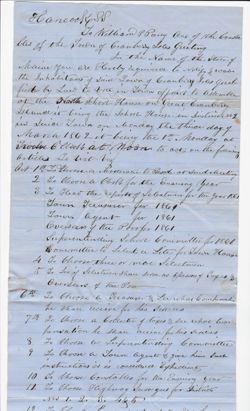 Hancock SS.
To William P Preble one of the Consta
bles of the Town of Cranberry Isles Greeting
In the Name of the State of
Maine you are hereby required to Notify & warn
the Inhabitants of said Town of Cranberry Isles
by Law to vote in Town affairs to assemble
at the School House on Great Cranberry
Island being the School House in District No 2
in said Town on Monday the third day of
March 1862 it being the 1st Monday at
O Clock at Noon to act on the following
Articles To wit
Art 1st To Choose a Moderator to said Meeting
2 To Choose a Clerk for the Ensuing Year
3 To Hear the reports of the Town for the year 1861
Town Treasurer for 1861
Town Agent for 1861
Overseers of the Poor for 1861
Superintending School Committee for 1861
Committee to Select a Lot for Town House
4 To Choose three or more Selectmen
5 To see if Selectmen shall serve as
Overseers of the Poor
6th To Choose a Treasurer & 
he shall receive for his services
7th To Choose a Collector of Taxes & what Com
pensation he shall receive for his services
8 To Choose a Superintending Committee
9 To Choose a Town Agent & give him such
instructions as is considered Expedient
10 To Choose Constables for the Ensuing Year
11 To Choose Highway Surveyors for Districts
No 1. 2. 3. 4 & 5